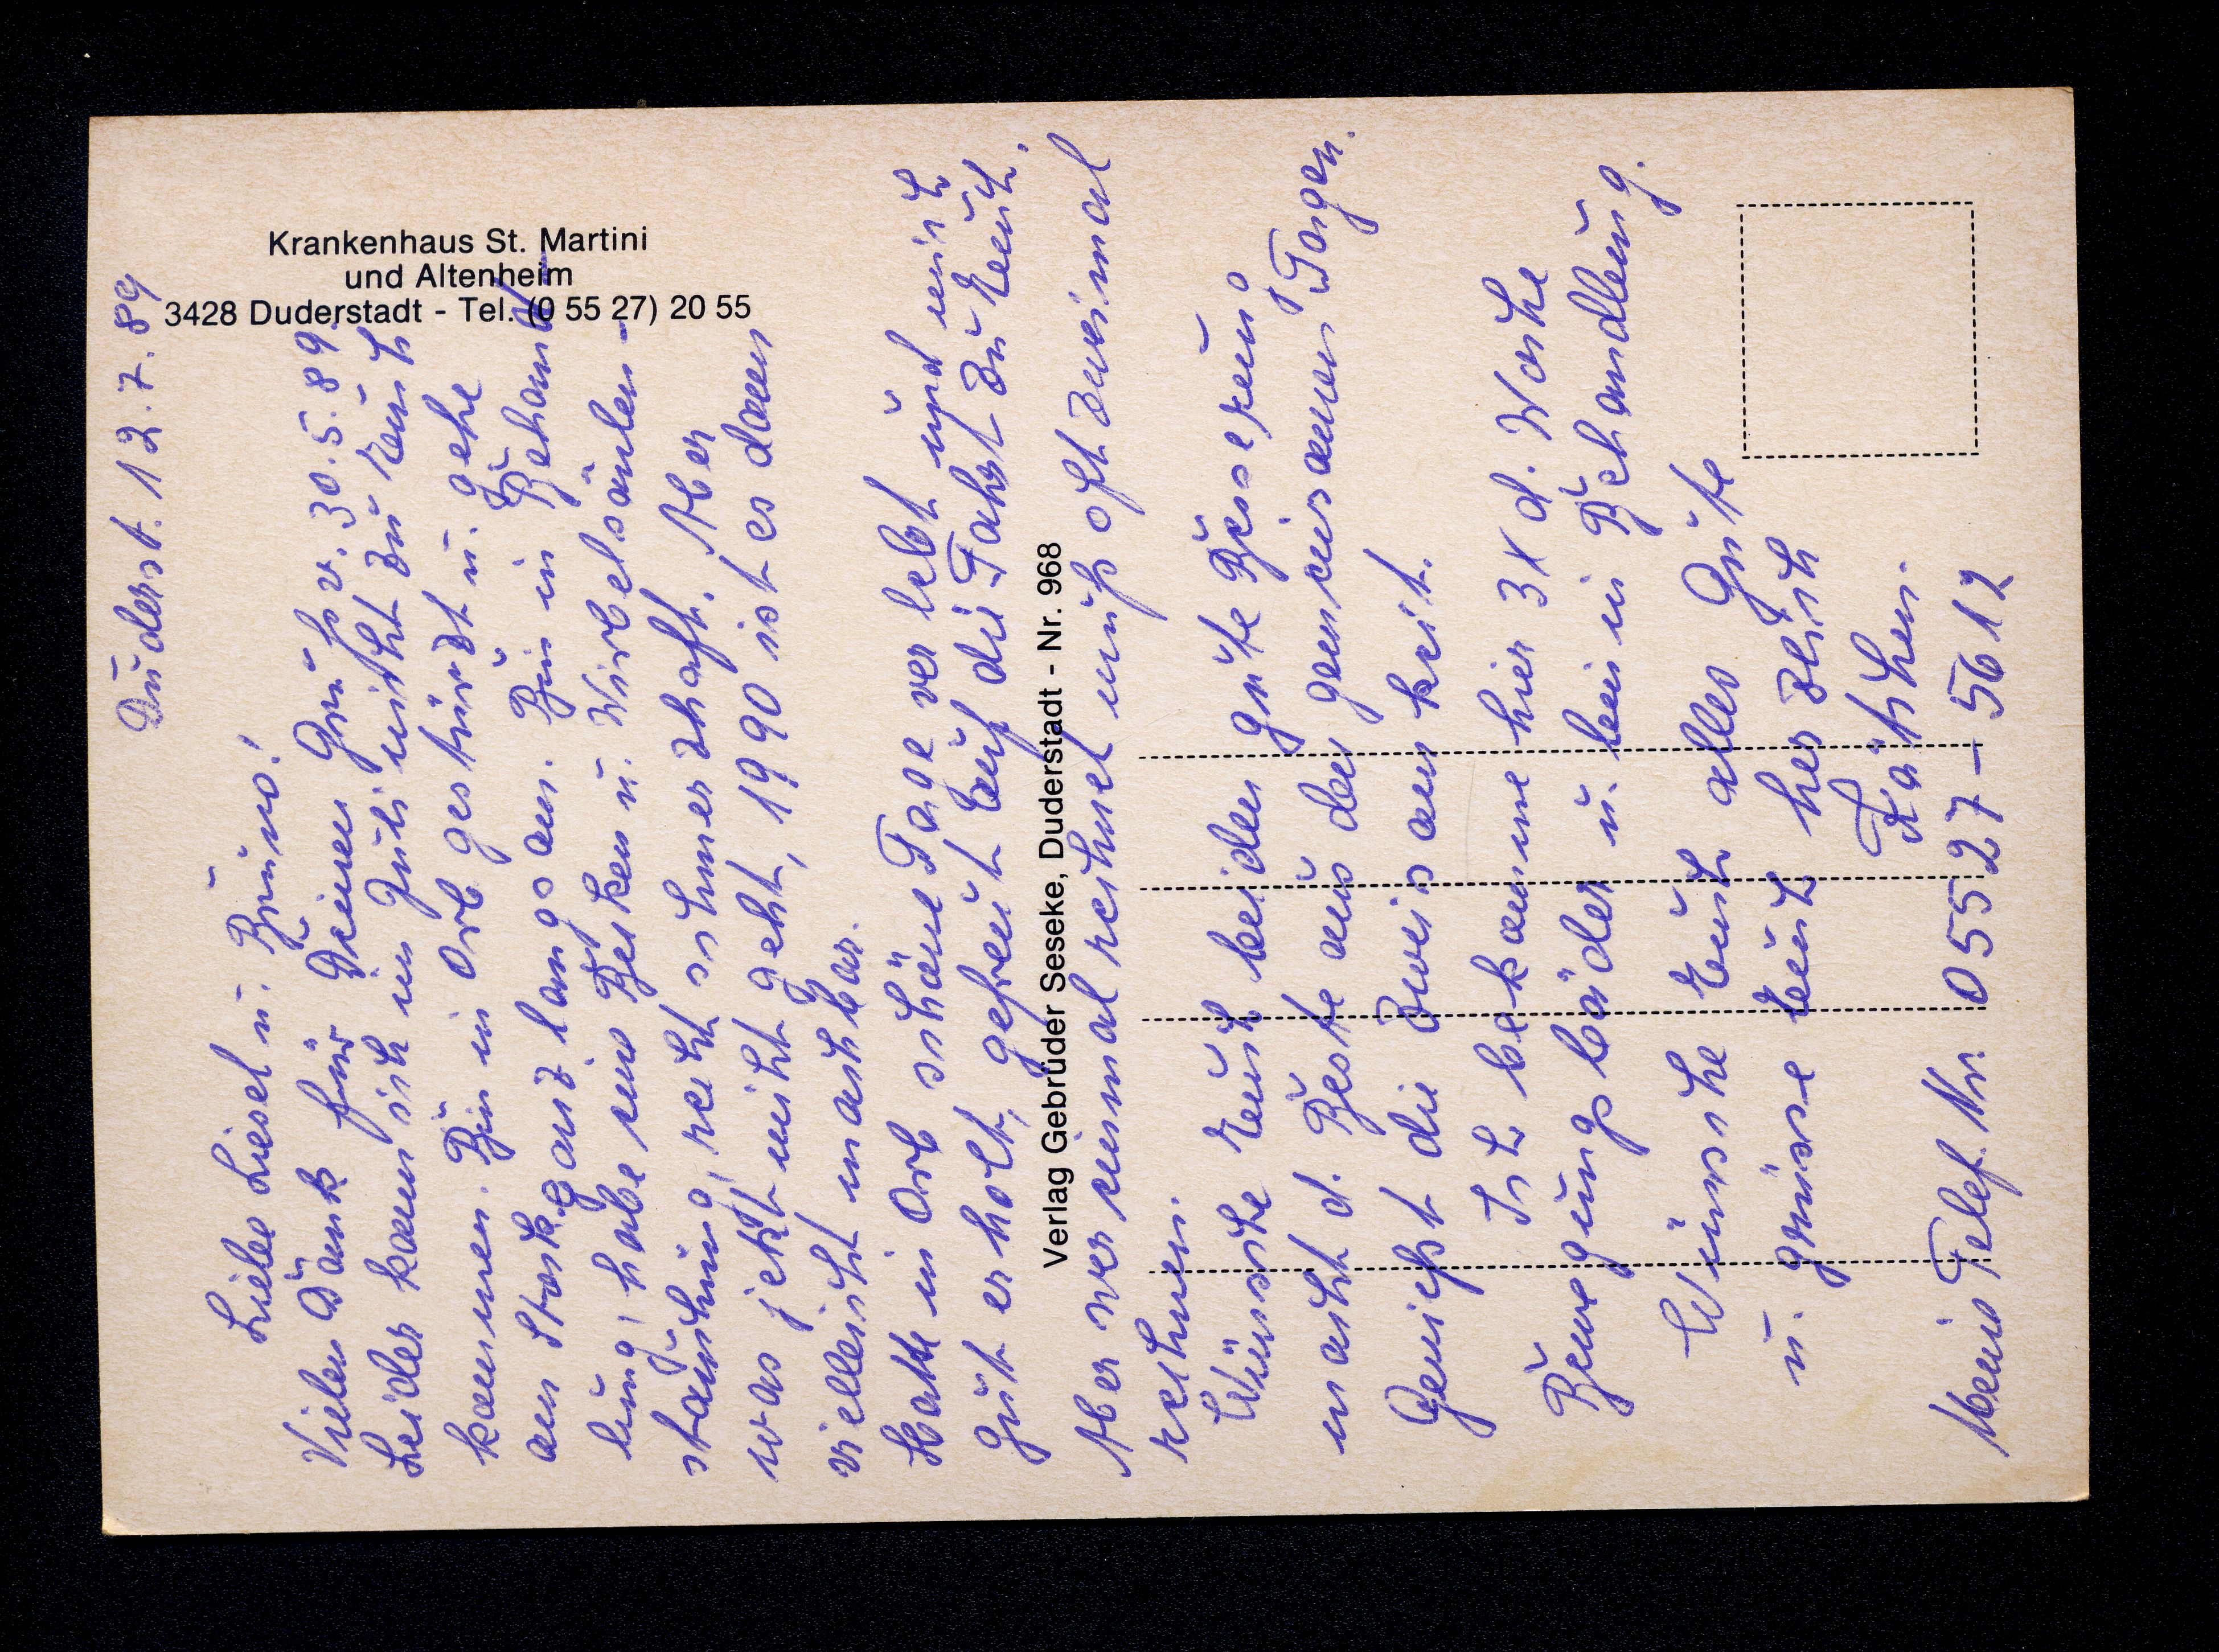 Krankenhaus St. Martini
und Altenheim
3428 Duderstadt - Tel. (0 55 27) 20 55
Verlag Gebrüder Seseke, Duderstadt - Nr. 968
Duderst. 12.7.89
Liebe Liesel u. Bruno!
Vielen Dank für Deinen Gruß v. 30.5.89.
Leider kann ich im Juli nicht zu Euch
kommen. Bin in Orb gestürzt u. gehe
am Stock, ganz langsam. Bin in Behand-
lung, habe eine Becken u. Wirbelsäulen-
stauchung, recht schmerzhaft. Aber
was jetzt nicht geht, 1990 ist es dann
vielleicht machbar.
Hatte in Orb schöne Tage verlebt und mich
gut erholt, gefreut auf die Fahrt zu Euch.
Aber wer einmal rechnet muß oft zweimal
rechnen.
Wünsche Euch beiden gute Besserung
macht d. Beste aus den gemeinsamen Tagen.
Genießt die Zweisamkeit.
Ich bekomme hier 3x d. Woche
Bewegungsbäder u. bin in Behandlung.
Wünsche Euch alles Gute
u. grüsse Euch herzlich
Käthen.
Meine Telef. Nr. 05527-5612